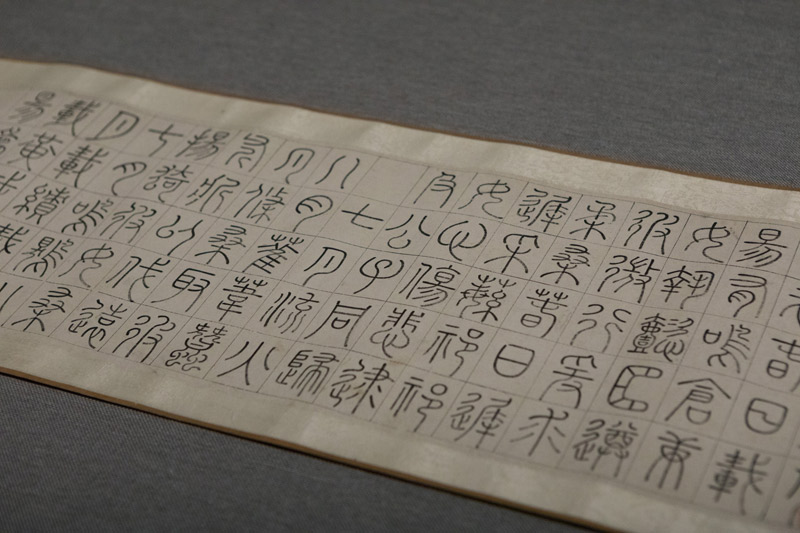 春日載
昜有鳴倉庚
女執懿筐遵
彼微行爰求
柔桑春日遲
遲采蘩祁祁
女心傷悲逮
及公子同歸
七月流火
八月萑葦蠶
月條桑取彼
斧斨以伐遠
揚猗彼女桑
七月鳴鵙八
月載績載
載黃我
昜